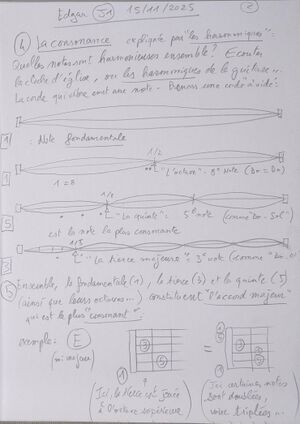 Edgar (J1) 15/11/2025 (2)
(4) La consonance expliquée par "les harmoniques":
Quelles notes sont harmonieuses ensemble? Ecoutez
la cloche d'église, ou les harmoniques de la guitare...
La corde qui vibre émet une note - Prenons une corde "à vide":
1 : Note fondamentale
1/2
1 "L'octave" - 8e Note (Do = Do)
1 = 8
1/3
5 "La quinte": 5e note (comme Do-Sol)
est la note la plus consonante
1/5
3 "La tierce majeure": 3e note (comme
(5) Ensemble, la fondamentale (1), la tierce (3) et la quinte (5)
(ainsi que leurs octaves...) constituent "l'accord majeur"
qui est le plus "consonant":
exemple: (E)
(mi majeur)
3 5
1
=
(Ici, la tierce est jouée
à l'octave supérieure)
(Ici certaines notes
sont doublées,
voire triplées...